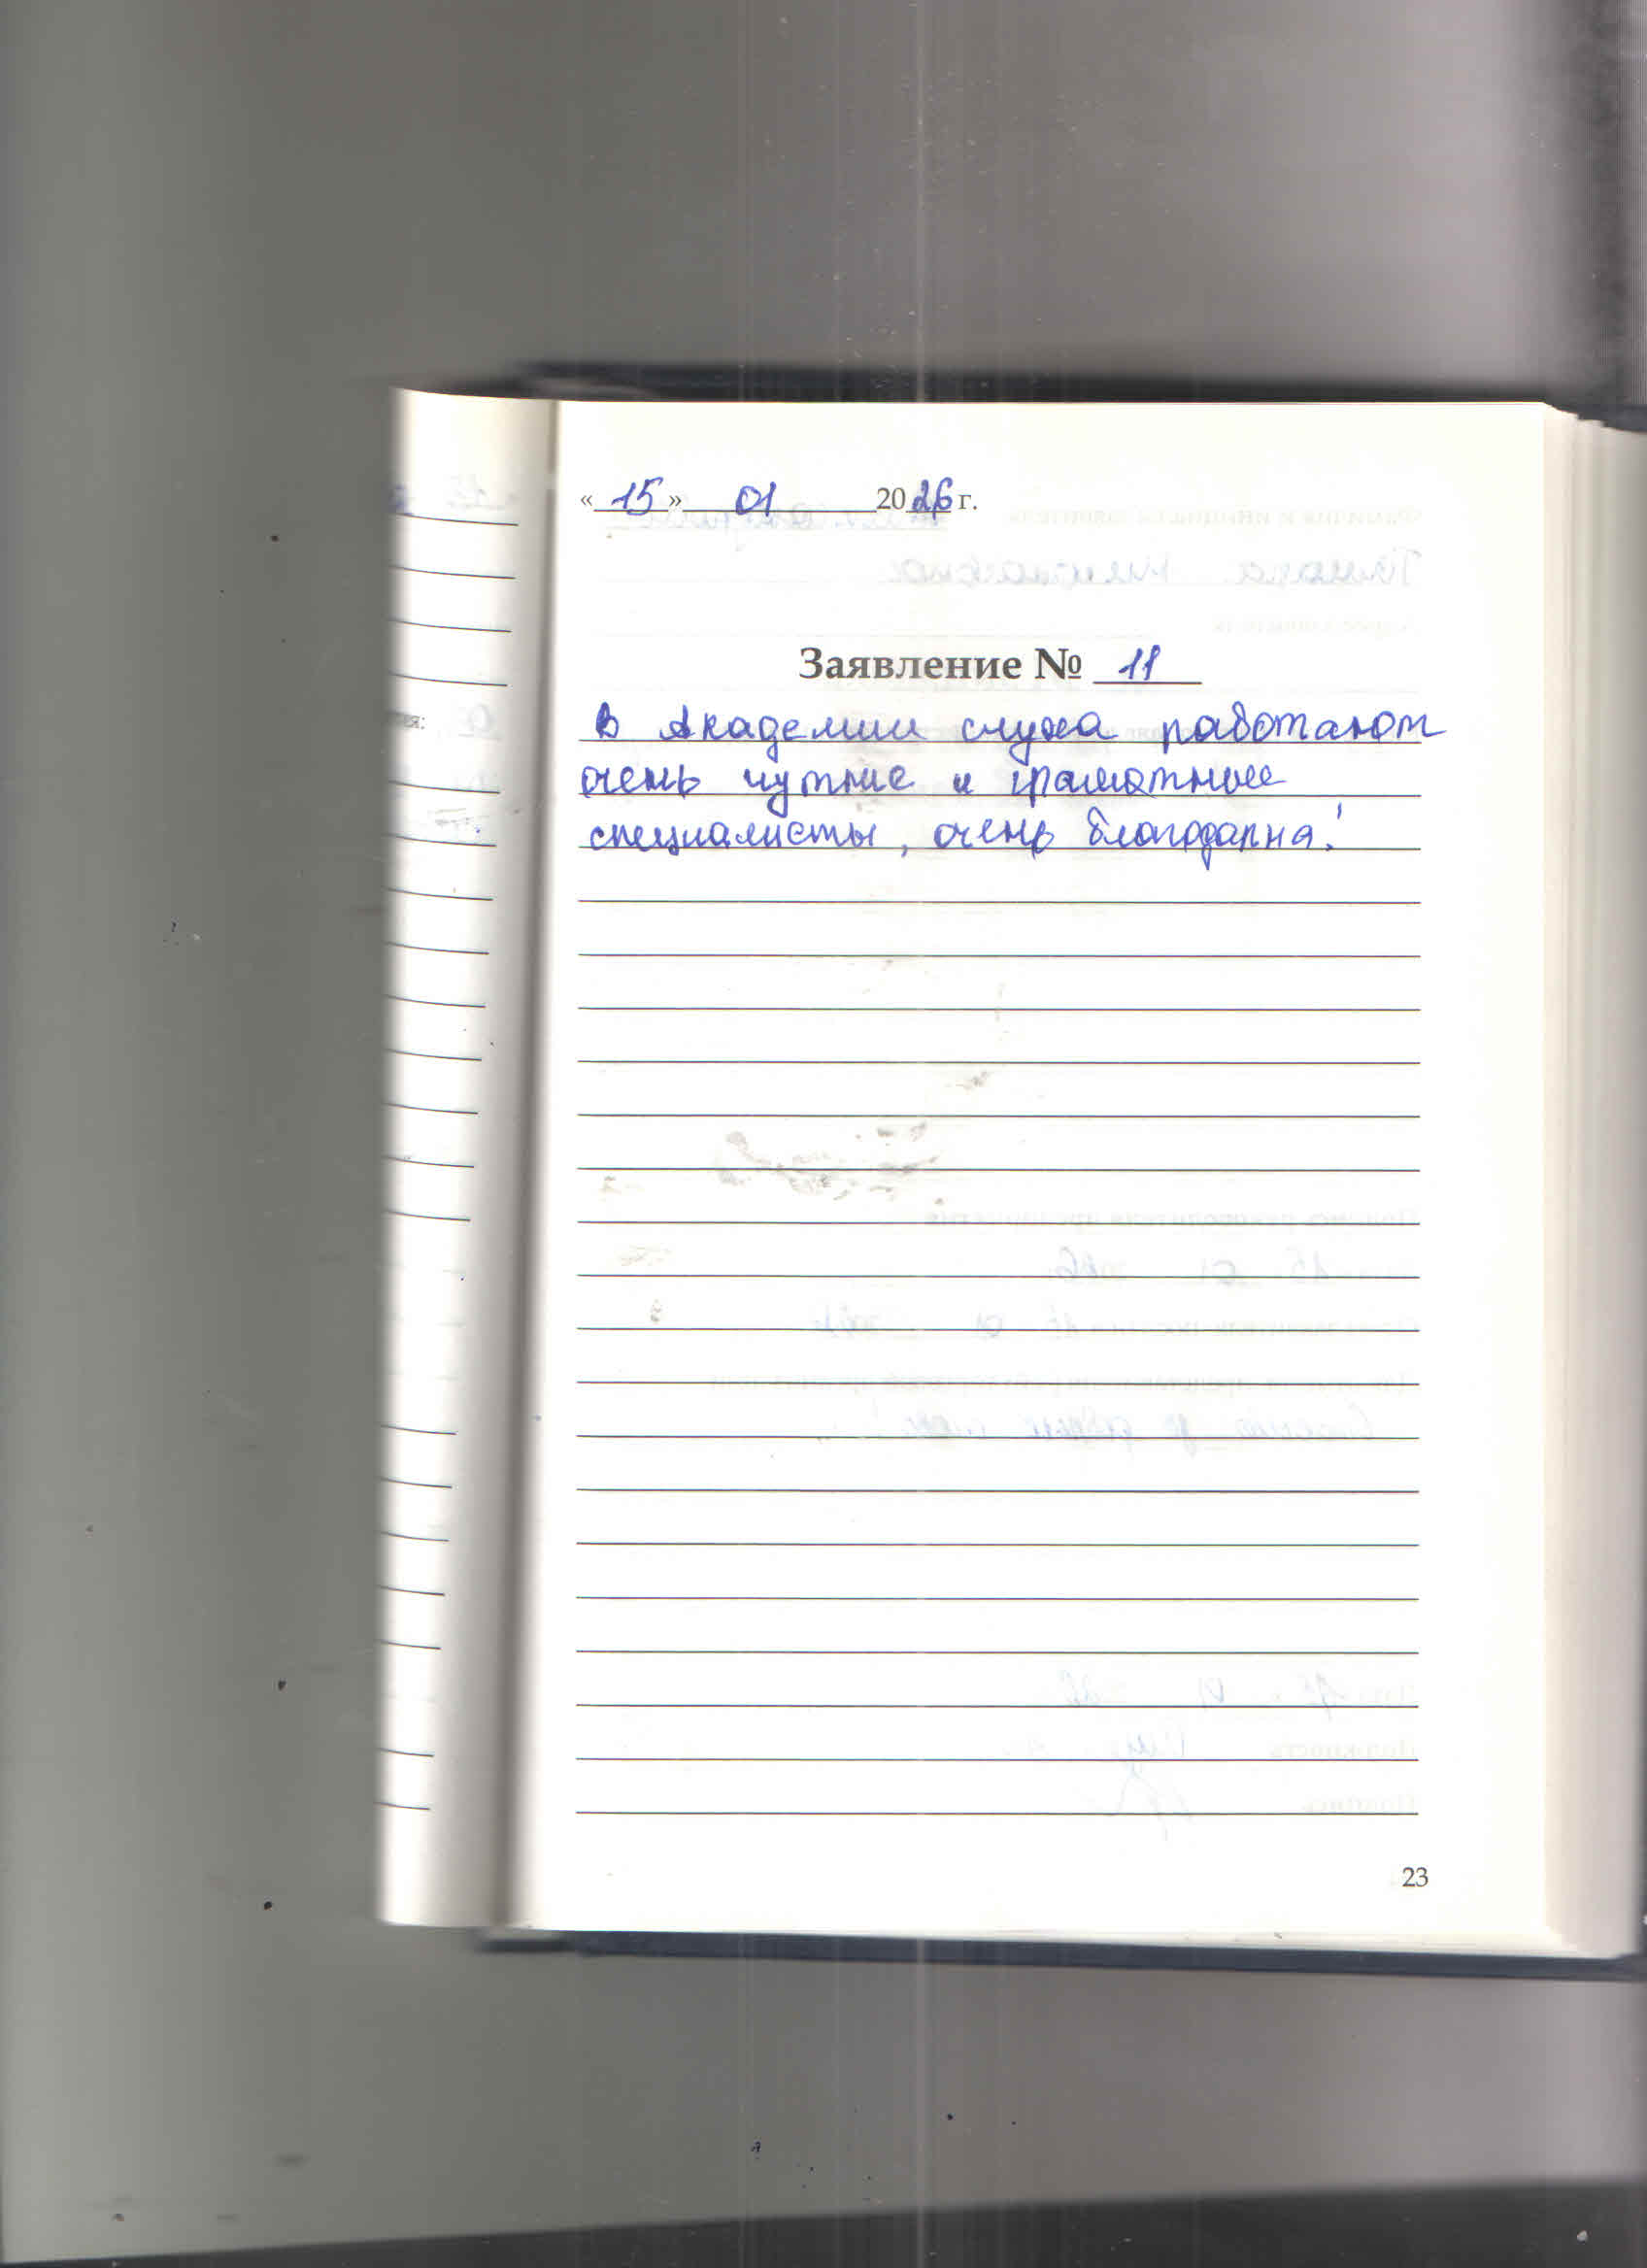 « 15 » 01 2026 г.
Заявление № 11
В Академии слуха работают
очень чуткие и грамотные
специалисты, очень благодарна!
23